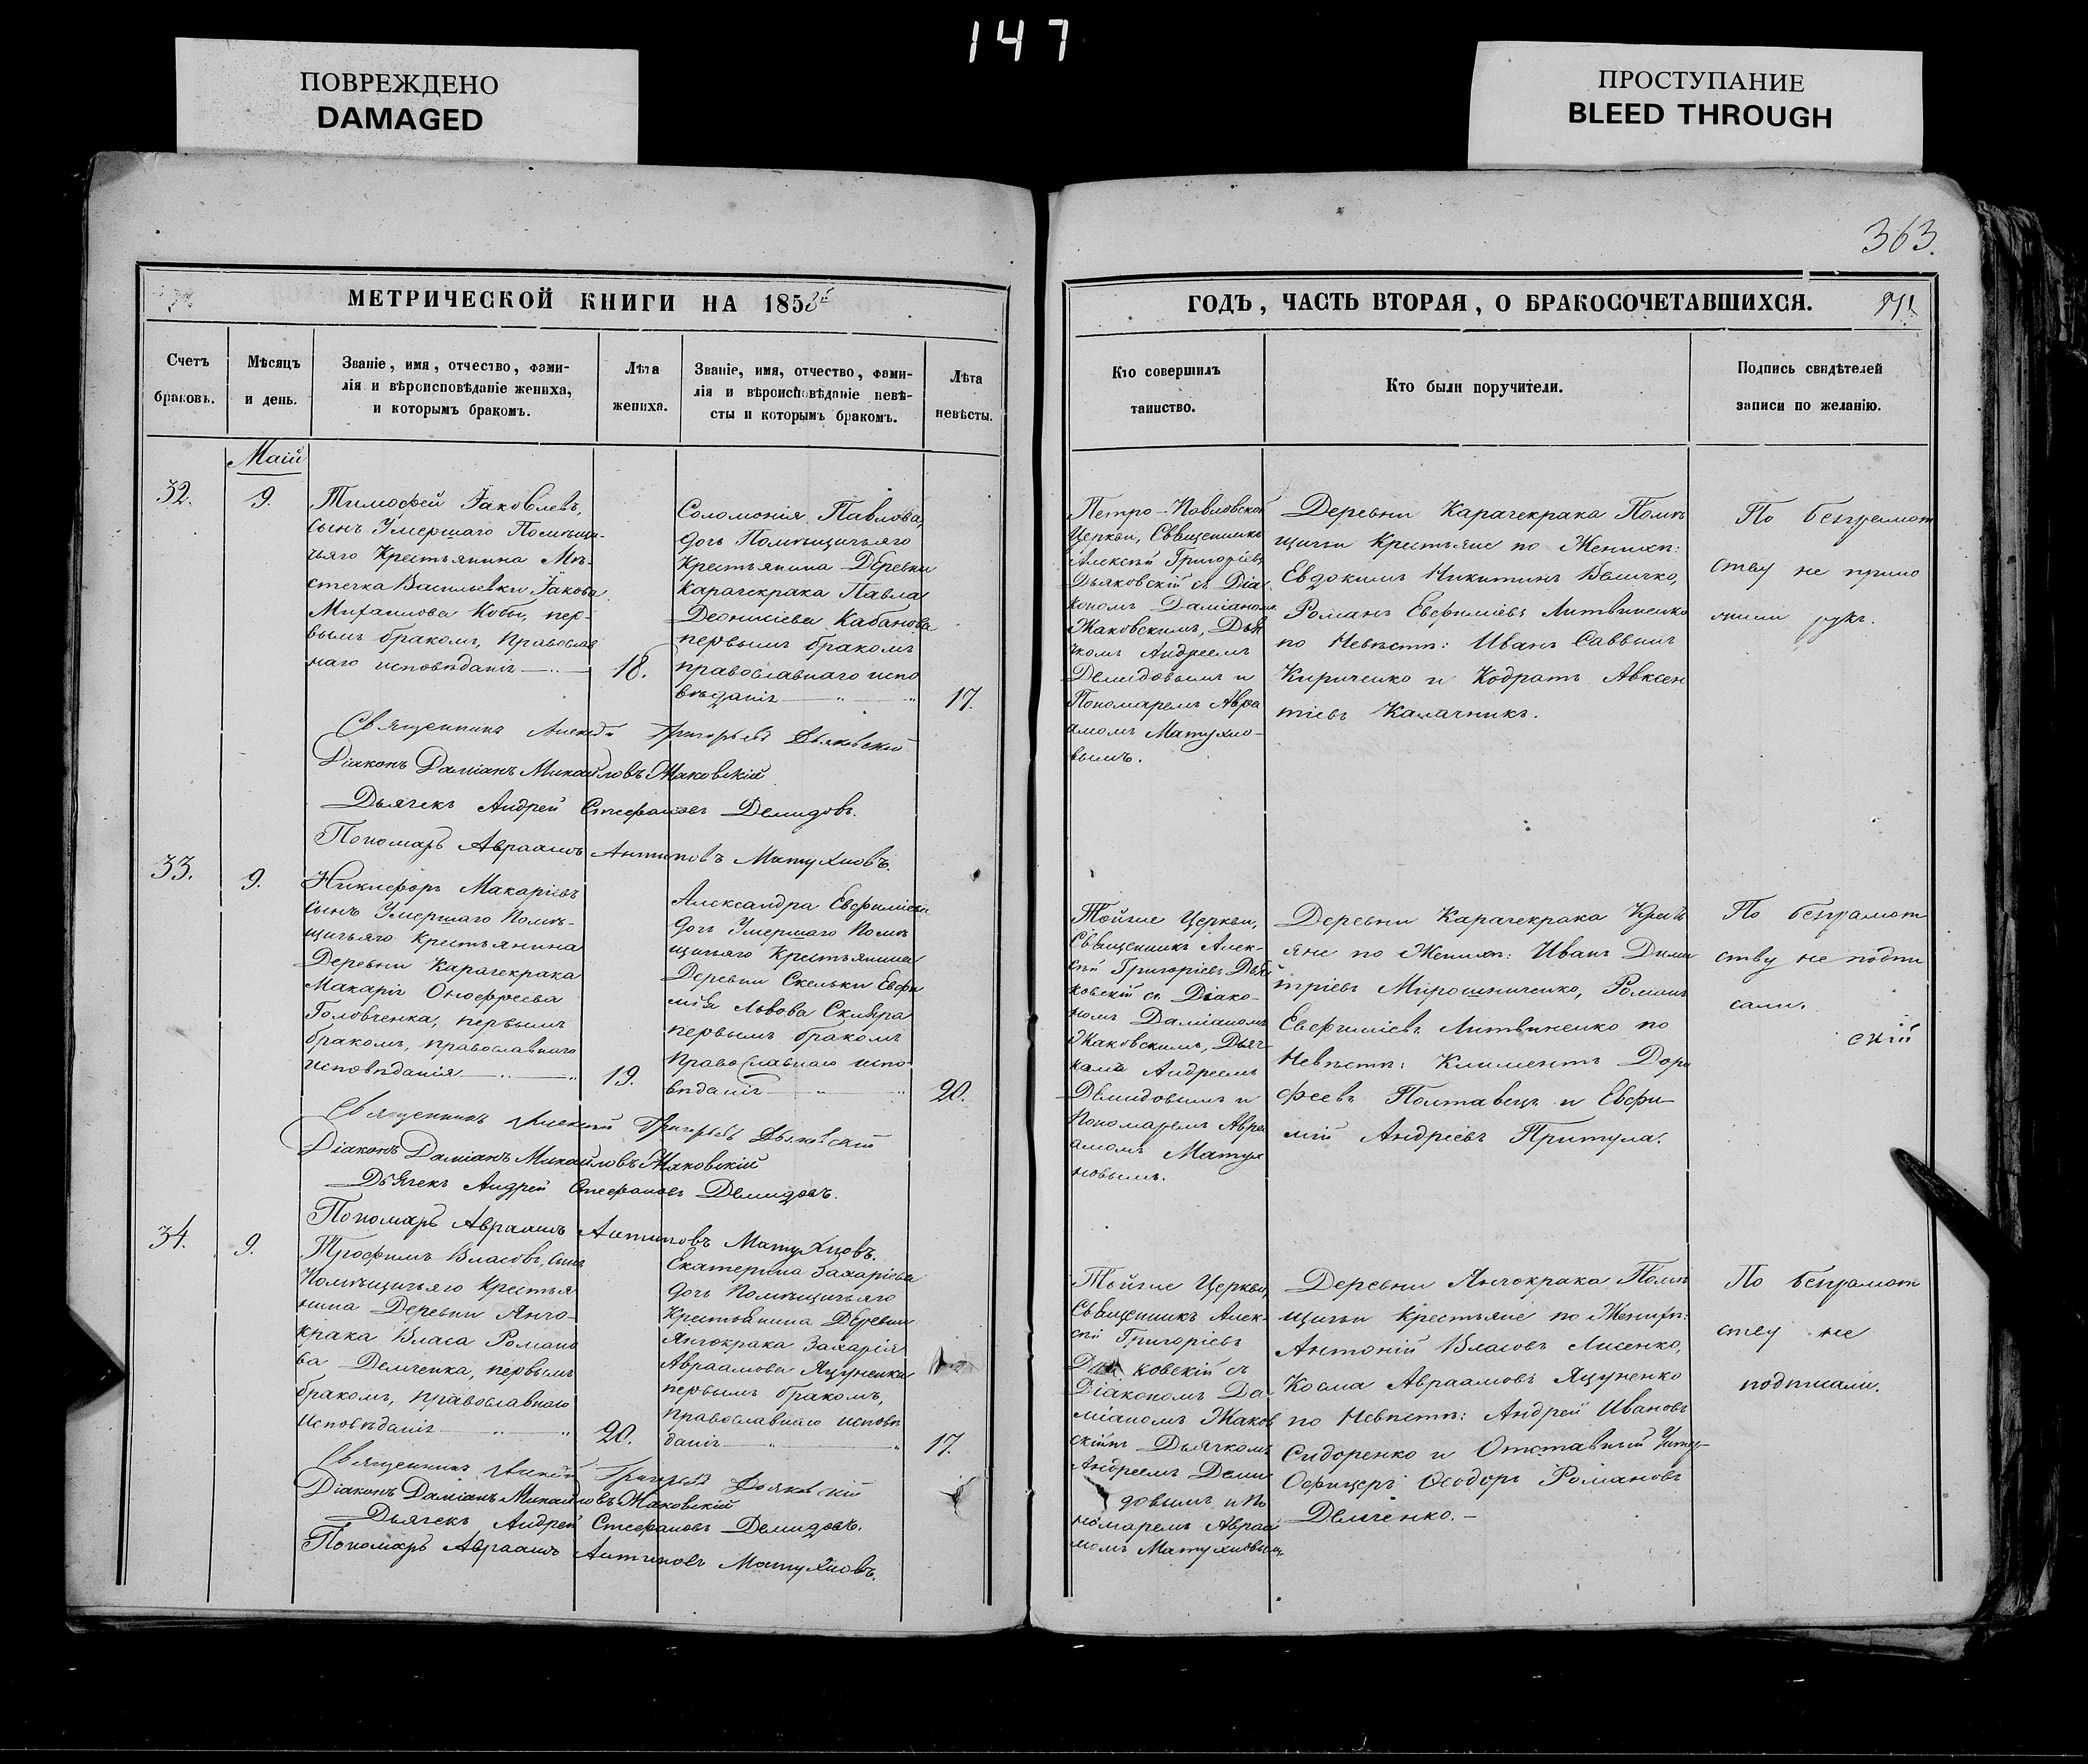 147
ПОВРЕЖДЕНО
DAMAGED
ПРОСТУПАНИЕ
BLEED THROUGH
363.
МЕТРИЧЕСКОЙ КНИГИ НА 1853й
Счетъ
браковъ.
Мѣсяцъ
и день.
Званіе, имя, отчество, фами-
лія и вѣроисповѣданіе жениха,
и которымъ бракомъ.
Лѣта
жениха.
Званіе, имя, отчество, фами-
лія и вѣроисповѣданіе невѣ-
сты и которымъ бракомъ.
Лѣта
невѣсты.
Маій
32.
9.
Тимофей Яковлевъ,
сынъ Умершаго Помѣщи-
чьяго Крестьянина Мѣ-
стечка Васильевки Іакова
Михаилова Кобы, пер-
вымъ бракомъ, Православ
наго исповѣданія
18.
Соломонія Павлова,
дочь Помѣщичьяго
Крестьянина Деревни
Карачекрака Павла
Деонисіева Кабанова
первымъ бракомъ
православнаго испо
вѣданія
17.
Священникъ Алексѣй Григорьевъ Дьяковскій
Діаконъ Даміанъ Михайловъ Жаковскій
Дьячекъ Андрей Стефановъ Демидовъ.
Пономарь Авраамъ Антиповъ Матухновъ.
33.
9.
Никифоръ Макаріевъ
сынъ Умершаго Помѣ-
щичьяго Крестьянина
Деревни Карачекрака
Макарія Онофреева
Головченка, первымъ
бракомъ, православнаго
исповѣданія
19.
Александра Евфиміева
дочь Умершаго Помѣ
щичьяго Крестьянина
Деревни Скельки Евфи
мія Львова Скляра
первымъ бракомъ
Православнаго испо
вѣданія
20.
Священникъ Алексѣй Григорьевъ Дьяковскій
Діаконъ Даміанъ Михайловъ Жаковскій
Дьячекъ Андрей Стефановъ Демидовъ.
Пономарь Авраамъ Антиповъ Матухновъ.
34.
9.
Трофимъ Власовъ, сынъ
Помѣщичьяго Крестья
нина Деревни Янчо-
крака Власа Романо
ва Демченка, первымъ
бракомъ, православнаго
исповѣданія
20.
Екатерина Захаріева
дочь Помѣщичьяго
Крестьянина Деревни
Янчокрака Захарія
Авраамова Яцуненка
первымъ бракомъ,
православнаго исповѣ
данія
17.
Священникъ Алексѣй Григорьевъ Дьяковскій
Діаконъ Даміанъ Михайловъ Жаковскій
Дьячекъ Андрей Стефановъ Демидовъ.
Пономарь Авраамъ Антиповъ Матухновъ.
ГОДЪ, ЧАСТЬ ВТОРАЯ, О БРАКОСОЧЕТАВШИХСЯ.
Кто совершилъ
таинство.
Кто были поручители.
Подпись свидѣтелей
записи по желанію.
Петро-Павловской
Церкви, Священникъ
Алексѣй Григоріевъ
Дьяковскій съ Діа
кономъ Даміаномъ
Жаковскимъ, Дья
чкомъ Андреемъ
Демидовымъ и
Пономаремъ Авра
амомъ Матухно-
вымъ.
Деревни Карачекрака Помѣ
щичьи Крестьяне по Женихѣ:
Евдокимъ Никитинъ Величко,
Романъ Евфиміевъ Литвиненко
по Невѣстѣ: Иванъ Саввинъ
Кириченко и Кодратъ Авксен
тіевъ Калачникъ.
По безграмот
ству не прило
жили рукъ.
Тойже Церкви,
Священникъ Алек-
сѣй Григоріевъ Дья
ковскій съ Діако-
номъ Даміаномъ
Жаковскимъ, Дьяч-
комъ Андреемъ
Демидовымъ и
Пономаремъ Авра
амомъ Матух
новымъ.
Деревни Карачекрака Кресть
яне по Женихѣ: Иванъ Дими
тріевъ Мирошниченко, Романъ
Евфиміевъ Литвиненко по
Невѣстѣ: Климентъ Доро
феевъ Полтавецъ и Евфи-
мій Андреевъ Притула.
По безграмот
ству не подпи
сали.
скій
Тойже Церкви,
Священникъ Алек-
сѣй Григоріевъ
ковскій съ
Діакономъ Да
міаномъ Жаков
скимъ Дьячкомъ
Андреемъ Деми
довымъ и По
номаремъ Авраа
момъ Матухновымъ.
Деревни Янчокрака Помѣ
щичьи Крестьяне по Женихѣ:
Антоній Власовъ Лисенко,
Косма Авраамовъ Яцуненко
по Невѣстѣ: Андрей Ивановъ
Сидоренко и Отставный Унтер-
Офицеръ Ѳеодоръ Романовъ
Демченко.—
По безграмот
ству не
подписали.